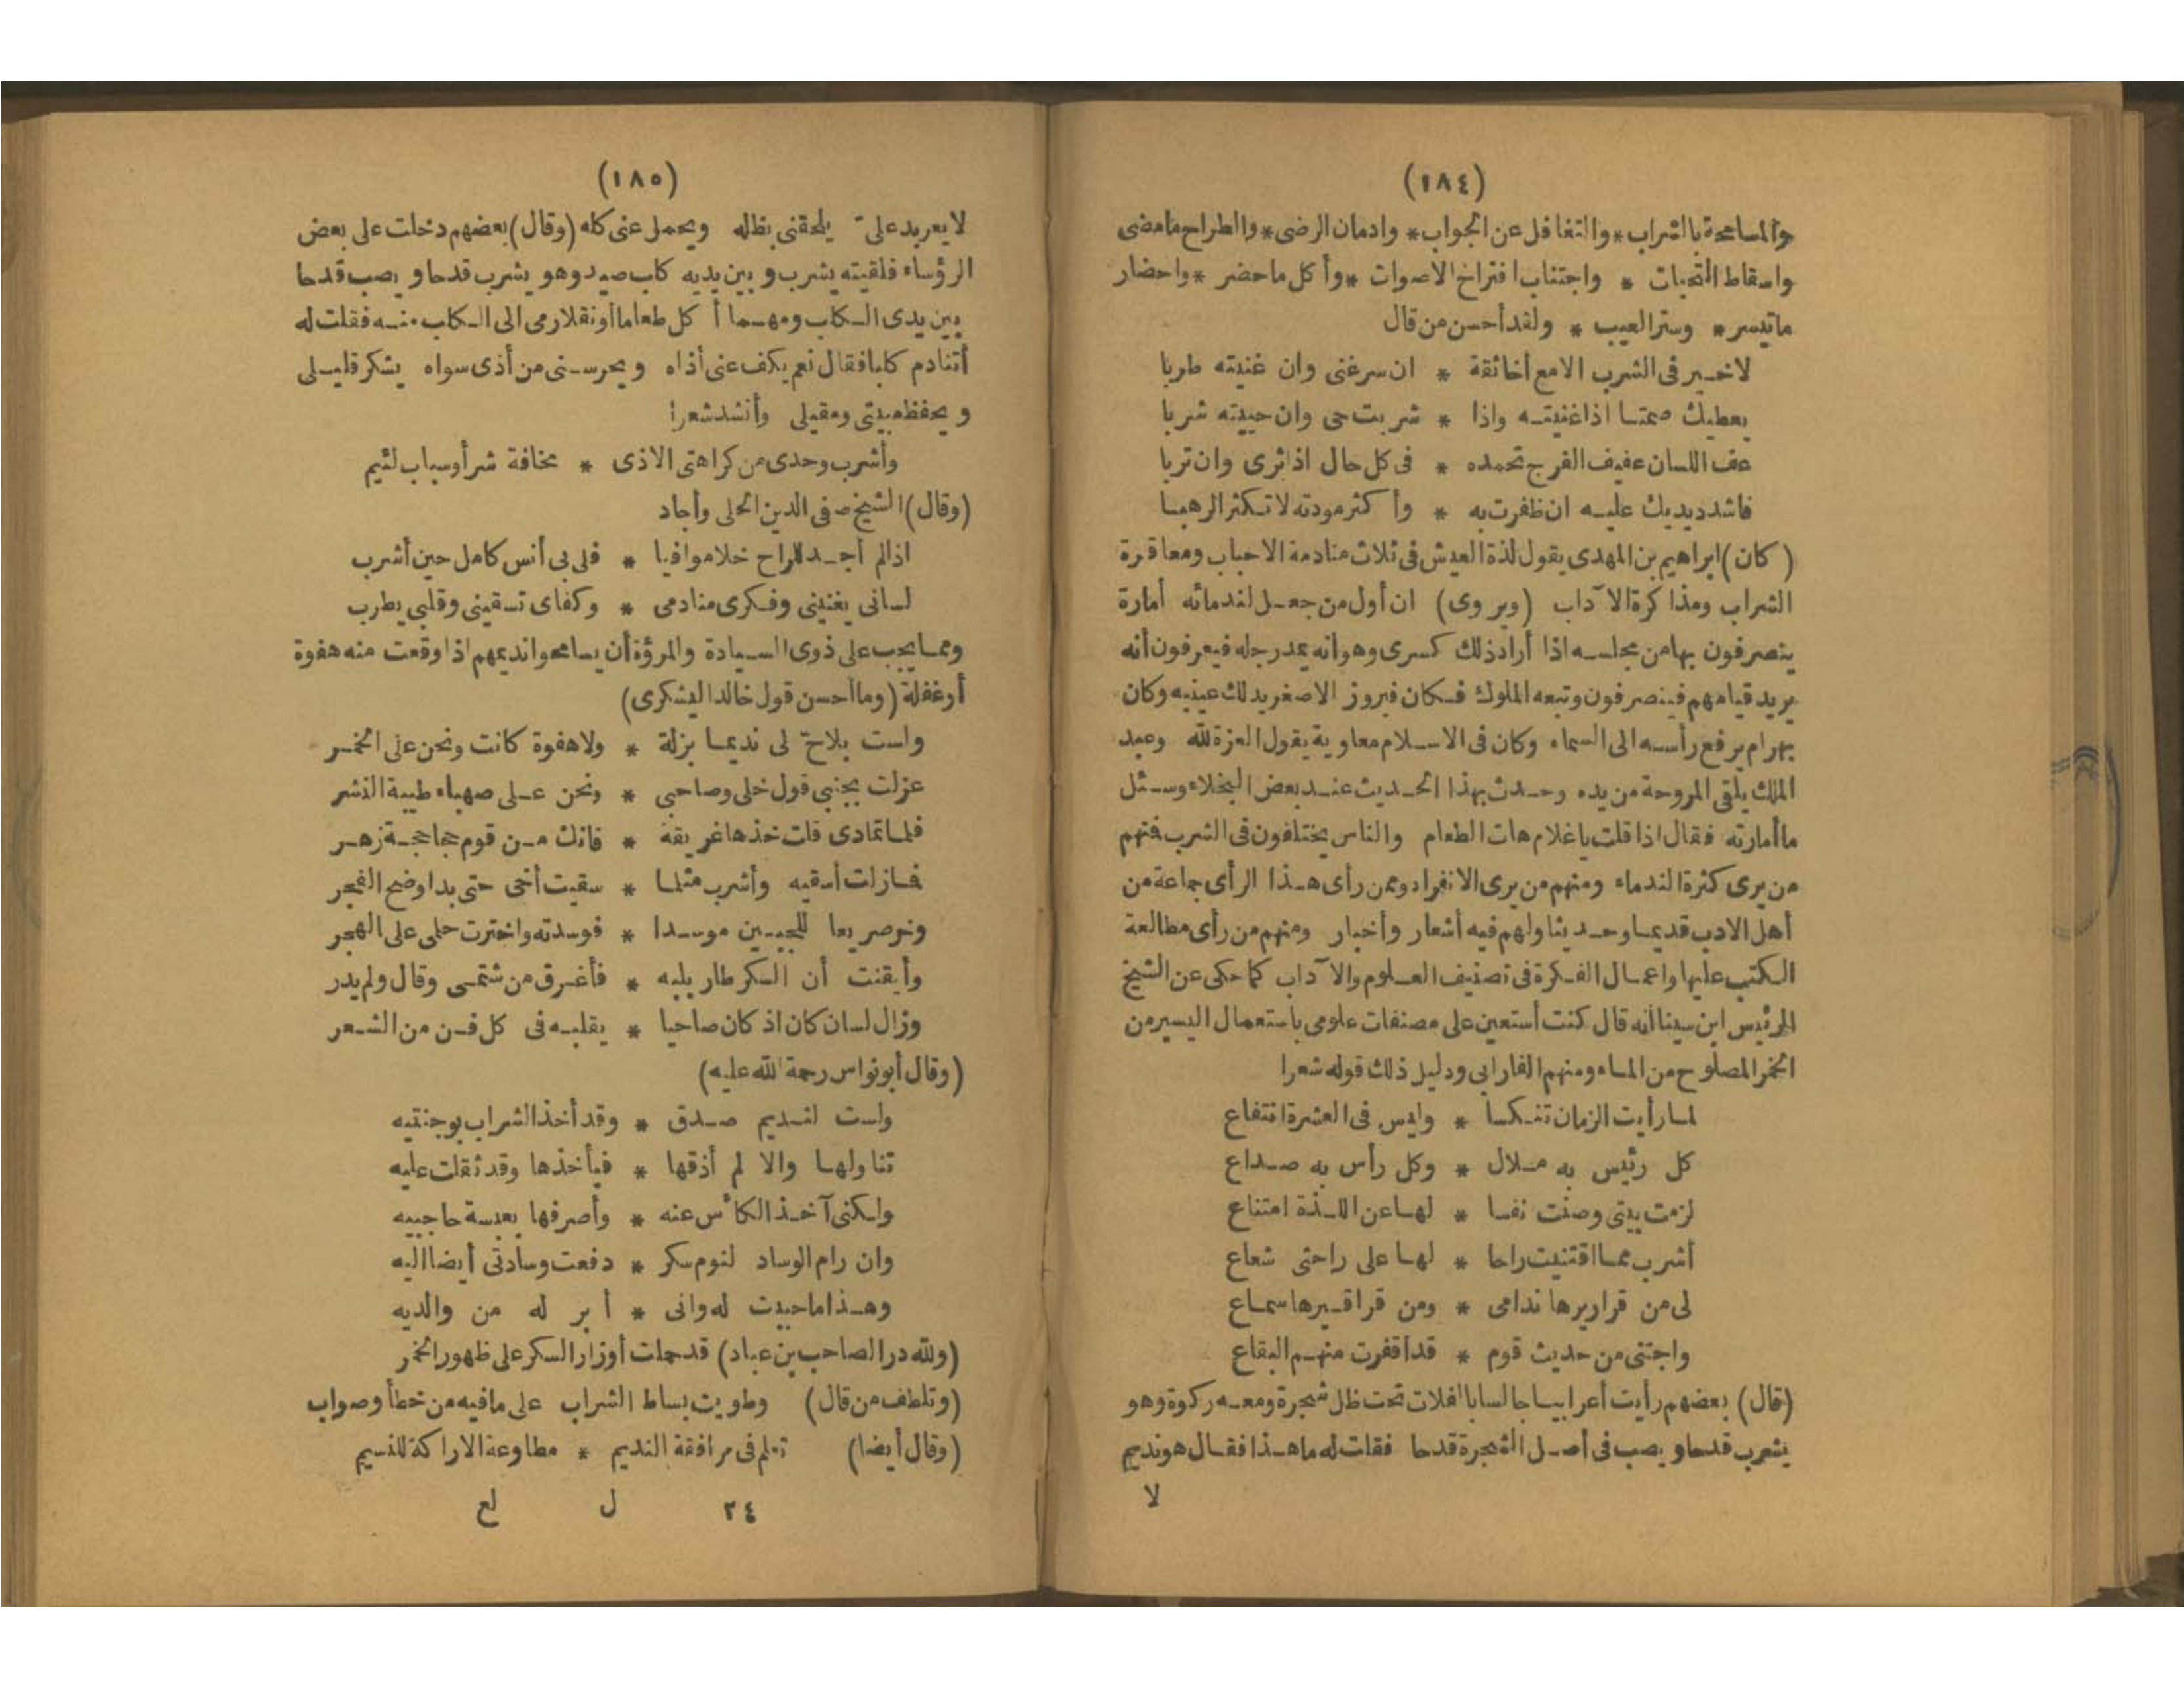 (١٨٤)
والمسامحة بالشراب* والتغافل عن الجواب* وادمان الرضى* واطراح مامضى
واسقاط التحيات * واجتناب اقتراح الاصوات * وأكل ماحضر * واحضار
ماتيسر * وستر العيب * ولقد أحسن من قال
لاخير فى الشرب الامع أخاثقة * ان سر غنى وان غنيته طربا
يعطيك صمتا اذاغنيته واذا * شربت حى وان حييته شربا
عف اللسان عفيف الفرج تحمده * فى كل حال اذ اثرى وان تربا
فاشدد يديك عليه ان ظفرت به * وأكثر مودته لاتكثر الرهبا
(كان) ابراهيم بن المهدى يقول لذة العيش فى ثلاث منادمة الاحباب ومعاقرة
الشراب ومذاكرة الآداب (ويروى) ان أول من جعل لندمائه أمارة
ينصرفون بهامن مجلسه اذا أراد ذلك كسرى وهوانه يمد رجله فيعرفون أنه
يريد قيامهم فينصرفون وتبعه الملوك فكان فيروز الاصغر يدلك عينيه وكان
بهرام يرفع رأسه الى السماء وكان فى الاسلام معاوية يقول العزة لله وعبد
الملك يلقى المروحة من يده وحدث بهذا الحديث عند بعض البخلاء وسئل
ماأمارته فقال اذا قلت ياغلام هات الطعام والناس يختلفون فى الشرب فمنهم
من يرى كثرة الندماء ومنهم من يرى الانفراد وممن رأى هذا الرأى جماعة من
أهل الادب قديما وحديثا ولهم فيه أشعار وأخبار ومنهم من رأى مطالعة
الكتب عليها واعمال الفكرة فى تصنيف العلوم والآداب كما حكى عن الشيخ
الرئيس ابن سينا أنه قال كنت أستعين على مصنفات علومى باستعمال اليسير من
الخمر المصلوح من الماء ومنهم الفارابى ودليل ذلك قوله شعرا
لما رأيت الزمان تنكسا * وليس فى العشرة انتفاع
كل رئيس به ملال * وكل رأس به صداع
لزمت بيتى وصنت نفسا * لها عن اللذة امتناع
أشرب مما اقتنيت راحا * لها على راحتى شعاع
لى من قراريرها ندامى * ومن قراقيرها سماع
واجتنى من حديث قوم * قد أقفرت منهم البقاع
(قال) بعضهم رأيت أعرابيا جالسا بالفلات تحت ظل شجرة ومعه ركوة وهو
يشرب قدحا ويصب فى أصل الشجرة قدحا فقلت له ماهذا فقال هو نديم
لا
(١٨٥)
لايعربد على يلحقنى بظله ويحمل عنى كله (وقال) بعضهم دخلت على بعض
الرؤساء فلقيته يشرب وبين يديه كلب صيد وهو يشرب قدحا ويصب قدحا
بين يدى الكلب ومهما أكل طعاما أو نقلا رمى الى الكلب منه فقلت له
أتنادم كلبا فقال نعم يكف عنى أذاه ويحرسنى من أذى سواه يشكر قليلى
ويحفظ مبيتى ومقيلى وأنشد شعرا
وأشرب وحدى من كراهتى الاذى * مخافة شر أوسباب لئيم
(وقال) الشيخ صفى الدين الحلى وأجاد
اذالم أجد للراح خلا موافيا * فلى بى أنس كامل حين أشرب
لسانى يغنينى وفكرى منادمى * وكفاى تسقينى وقلبى يطرب
ومما يجب على ذوى السيادة والمروة أن يسامحوا نديمهم اذا وقعت منه هفوة
أوغفلة (وماأحسن قول خالد اليشكرى)
ولست بلاح لى نديما بزلة * ولاهفوة كانت ونحن على الخمر
عزلت بجنبى قول خلى وصاحبى * ونحن على صهباء طيبة النشر
فلما تمادى قلت خذها غريقة * فانك من قوم جحاجحة زهر
فمازلت أسقيه وأشرب مثلما * سقيت أخى حتى بدا وضح الفجر
وخر صريعا للجبين موسدا * فوسدته واخترت حلمى على الهجر
وأيقنت أن السكر طار بلبه * فأغرق من شتمى وقال ولم يدر
وزال لسان كان اذ كان صاحيا * يقلبه فى كل فن من الشعر
(وقال أبونواس رحمة الله عليه)
ولست لنديم صدق * وقد أخذ الشراب بوجنتيه
تناولها والا لم أذقها * فيأخذها وقد ثقلت عليه
ولكنى آخذ الكأس عنه * وأصرفها بعبسة حاجبيه
وان رام الوساد لنوم سكر * دفعت وسادتى أيضا اليه
وهذا ماحييت له وانى * أبر له من والديه
(ولله در الصاحب بن عباد) قد حملت أوزار السكر على ظهور الخمر
(وتلطف من قال) وطويت بساط الشراب على مافيه من خطأ وصواب
(وقال أيضا) تعلم فى مرافقة النديم * مطاوعة الاراكة للنسيم
٢٤ ل لع